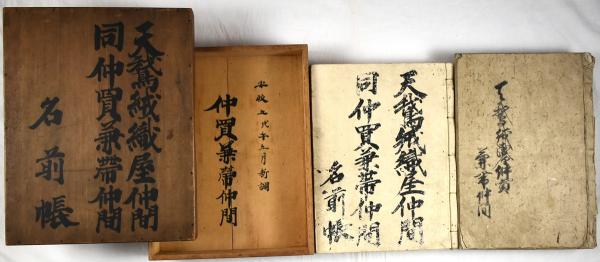 天鵞絨織屋仲間
同仲買兼帯仲間
名前帳
安政五戊午年五月新調
仲買兼帯仲間
天鵞絨織屋仲間
同仲買兼帯仲間
名前帳
兼帯仲間